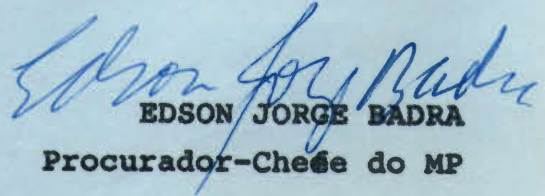 Edson Jorge Badra
EDSON JORGE BADRA
Procurador-Chefe do MP